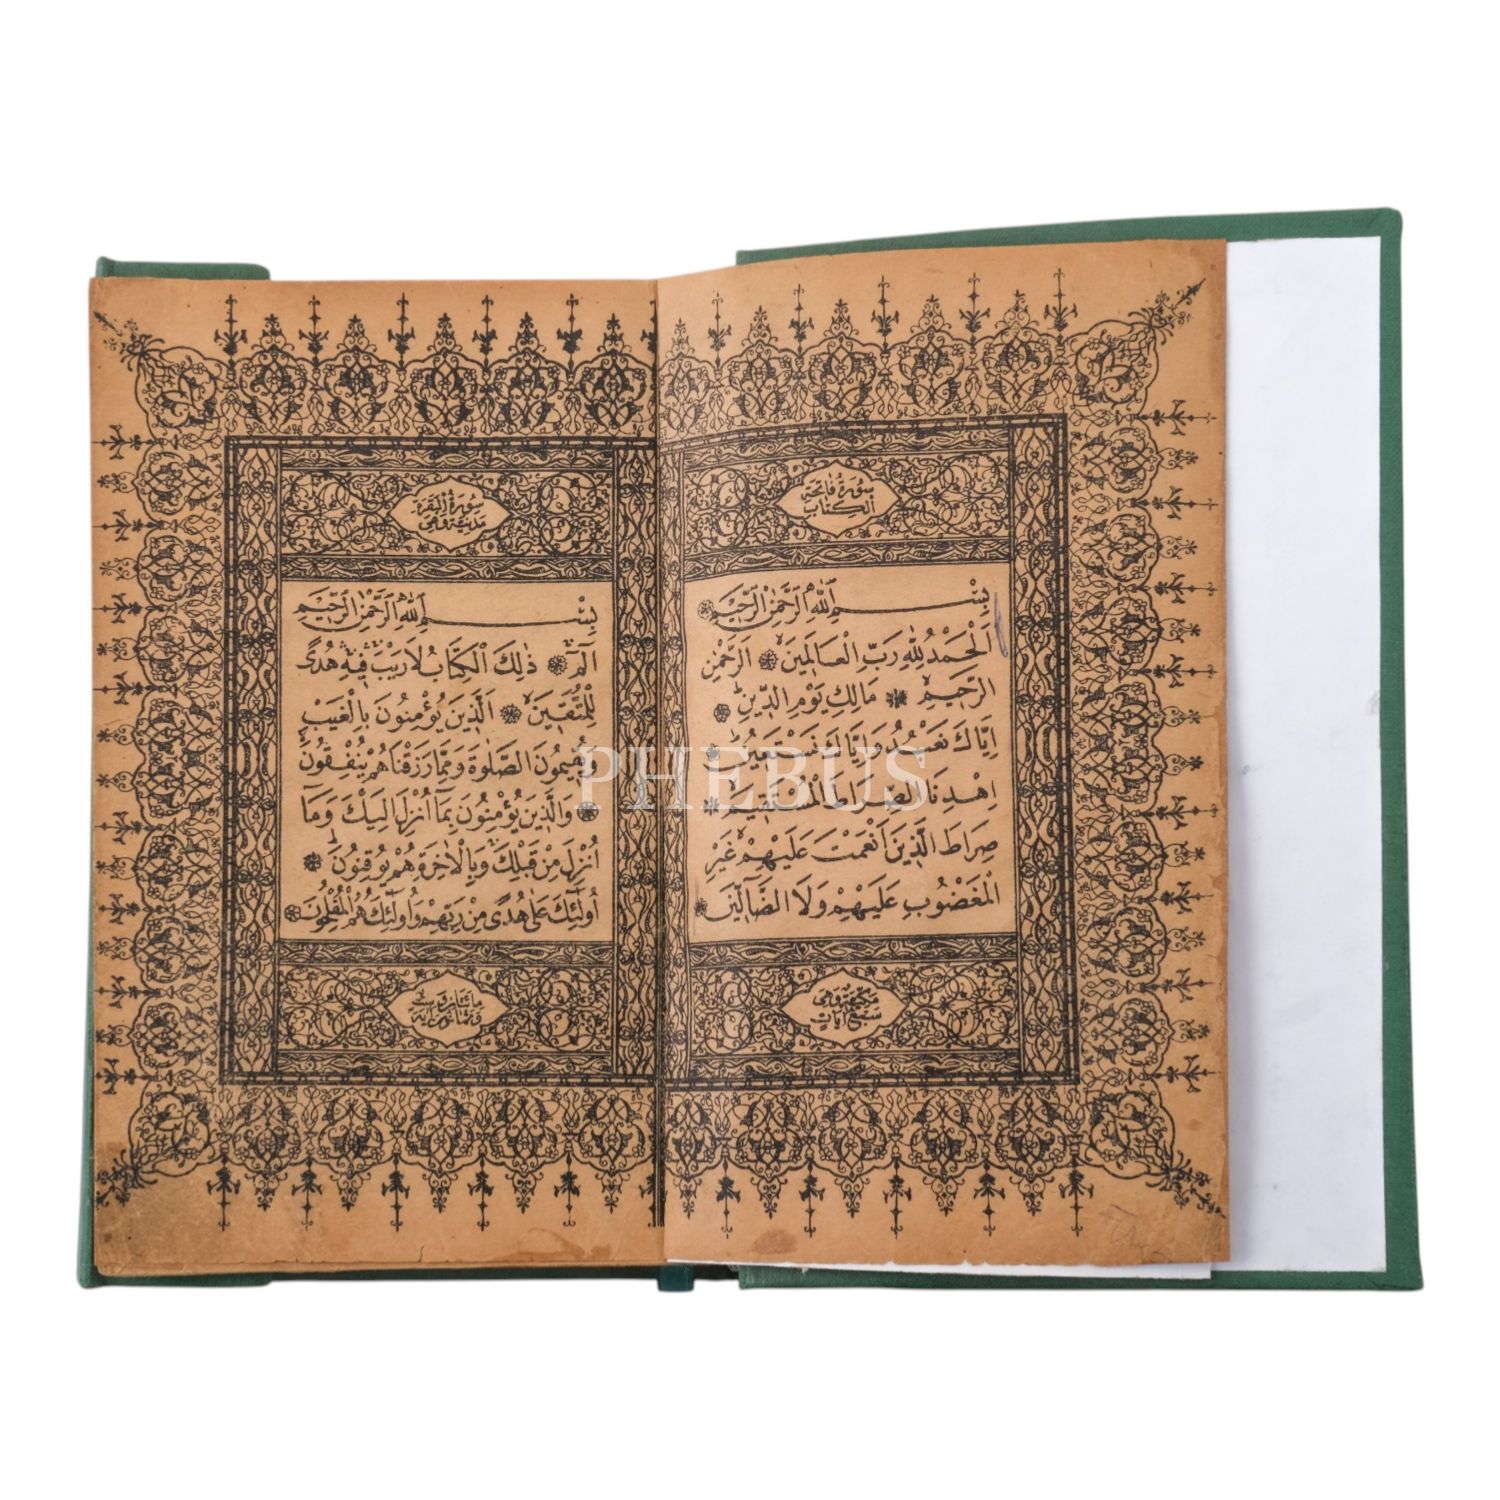 سورة فاتحة
الكتاب
بِسْمِ اللّٰهِ الرَّحْمٰنِ الرَّحِيمِ
اَلْحَمْدُ لِلّٰهِ رَبِّ الْعَالَمِينَ اَلرَّحْمٰنِ
الرَّحِيمِ مَالِكِ يَوْمِ الدِّينِ
اِيَّاكَ نَعْبُدُ وَاِيَّاكَ نَسْتَعِينُ
اِهْدِنَا الصِّرَاطَ الْمُسْتَقِيمَ
صِرَاطَ الَّذِينَ اَنْعَمْتَ عَلَيْهِمْ غَيْرِ
الْمَغْضُوبِ عَلَيْهِمْ وَلَا الضَّالِّينَ
مكية وهى
سبع ايات
سورة البقرة
مدنية وهى
بِسْمِ اللّٰهِ الرَّحْمٰنِ الرَّحِيمِ
الٓمٓ ذٰلِكَ الْكِتَابُ لَا رَيْبَ فِيهِ هُدًى
لِلْمُتَّقِينَ اَلَّذِينَ يُؤْمِنُونَ بِالْغَيْبِ
وَيُقِيمُونَ الصَّلٰوةَ وَمِمَّا رَزَقْنَاهُمْ يُنْفِقُونَ
وَالَّذِينَ يُؤْمِنُونَ بِمَا اُنْزِلَ اِلَيْكَ وَمَا
اُنْزِلَ مِنْ قَبْلِكَ وَبِالْاٰخِرَةِ هُمْ يُوقِنُونَ
اُولٰئِكَ عَلٰى هُدًى مِنْ رَبِّهِمْ وَاُولٰئِكَ هُمُ الْمُفْلِحُونَ
PHEBUS